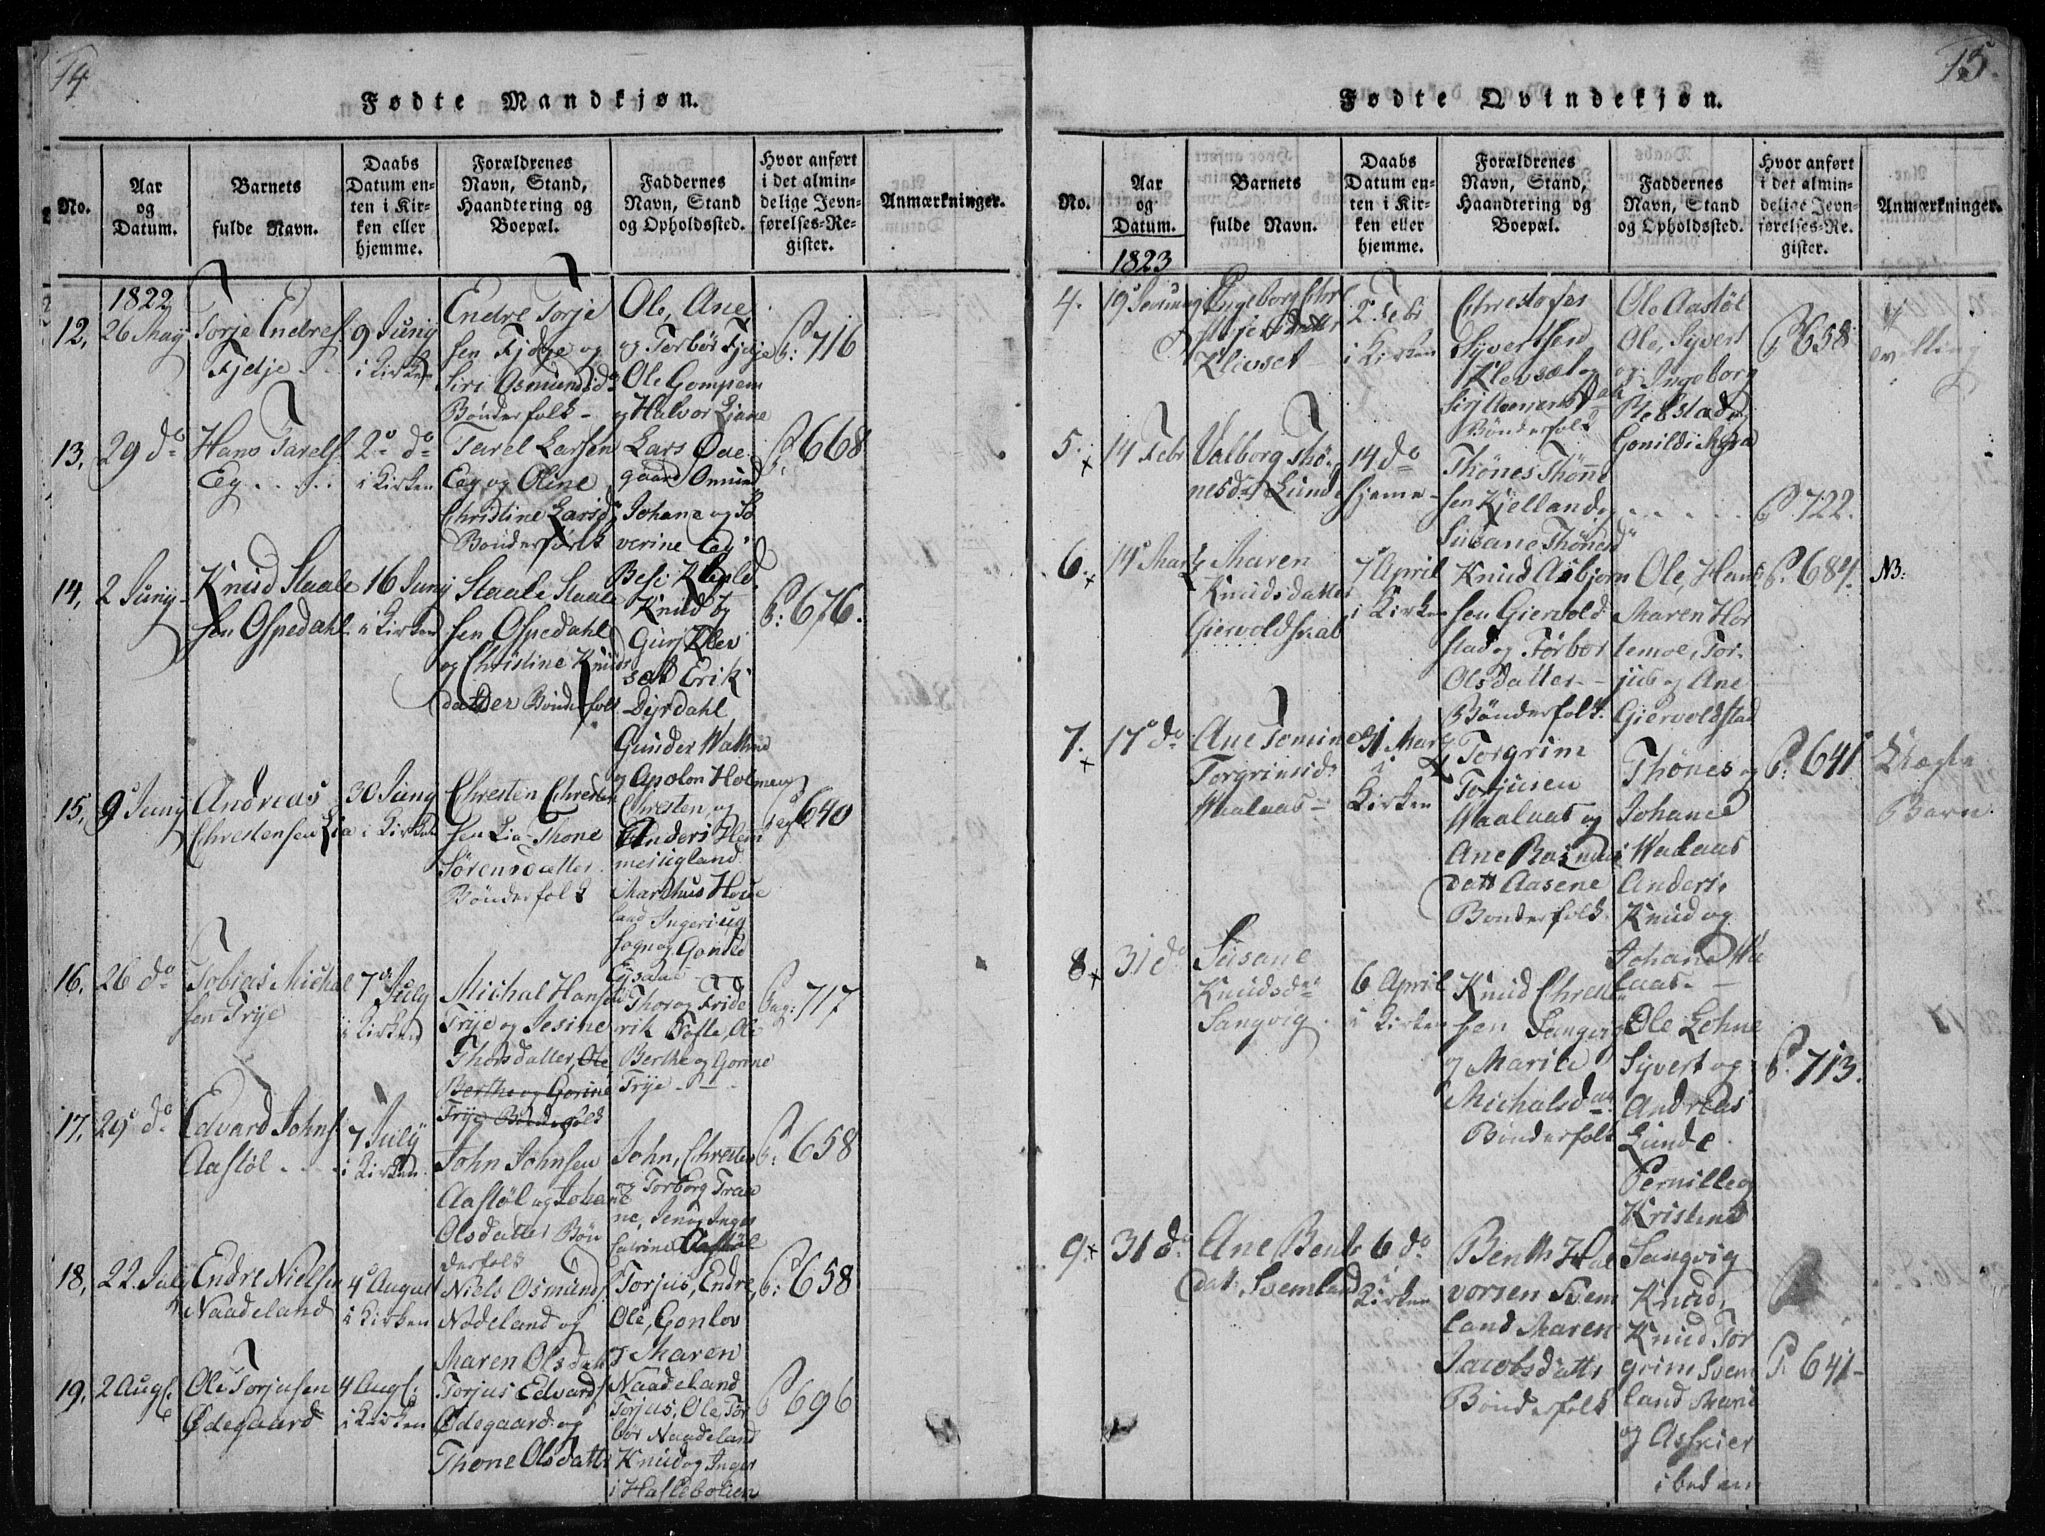 14
Fødte Mandkjøn.
No.
Aar
og
Datum.
Barnets
fulde Navn.
Daabs
Datum en-
ten i Kir-
ken eller
hjemme.
Forældrenes
Navn, Stand,
Haandtering og
Boepæl.
Faddernes
Navn, Stand
og Opholdssted.
Hvor anført
i det almin-
delige Jevn-
førelses-Re-
gister.
Anmærkninger.
1822
12,
26 May
Torje Endres
Fjelje
9 Junij
i Kirken
Endre Torje
sen Fjelje og
Siri Osmundsd
Bønderfolk
Ole, Ane
og Torbor Fjelje
Ole Gompem
og Halvor Liane
P: 716
13,
29 do
Hans Tarels
Eeg
2 do
i Kirken
Tarel Larsen
Eeg og Oline
Christine Larsd
Bønderfolk
Lars Ode
gaard Omund
Johane og So
verine Eeg
P: 668
14,
2 Junij
Knud Staale
sen Ospedahl
16 Junij
i Kirken
Staale Staale
sen Ospedahl
og Christine Knuds
datter Bønderfolk
Knud og
Guri Klev
sat Erik
Dyrdahl
Gunder
P: 676.
15,
9 Junij
Andreas
Chrestensen Lia
30 Junij
i Kirken
Chresten Chresten
sen Lia Thone
Sørensdatter
Bønderfolk
og Apolon Holmen
Chresten og
Anders Hem
mestigland
Marthus Hove
land
sogn og Gonild
640
16,
26 do
Tobias Michal
sen Trye
7 July
i Kirken
Michal Hansen
Trye og Jesine
Thorsdatter, Ole
Berthe og Gorine
Trye Bønderfolk
Thor og Fride
rik Tofte, Ole
Berthe og Gorine
Trye
Pag: 717
17,
29 do
Edvard Johns
Aastøl
7 July
i Kirken
John Johnsen
Aastøl og Johane
Olsdatter Bøn
derfolk
John, Chresten
og Torborg Trane
ne, Jens Inger
Aastøl
P: 658
18,
22 July
Endre Nielsen
Naadeland
4 August
i Kirken
Niels Osmunds
Nodeland og
Maren Olsdatt
Torjus, Endre,
Ole, Gonlov
og Maren
Naadeland
P: 658
19,
2 Augs
Ole Torjusen
Ødegaard
4 Augs:
i Kirken
Torjus Edvards
Ødegaard og
Thone Olsdatte
Torjus, Ole, Tor
bor Naadeland
Knud og Inger
P 696
15.
Fødte Qvindekjøn.
No.
Aar
og
Datum.
Barnets
fulde Navn.
Daabs
Datum en-
ten i Kir-
ken eller
hjemme.
Forældrenes
Navn, Stand,
Haandtering og
Boepæl.
Faddernes
Navn, Stand
og Opholdssted.
Hvor anført
i det almin-
delige Jevn-
førelses-Re-
gister.
Anmærkninger.
1823
4.
19
Klevset
2 Febr
i Kirken
Chrestofer
Syvertsen
Klevsæt og
Bønderfolk
Ole Aastøl
Ole, Syvert
og Ingeborg
Gonild
P 658
tvilling
5.
14 Febr
Valborg Thø
nesd: Lunde
14 do
hjeme
Thønes Thønne
sen Kjelland og
Susane Thønesd
P 722.
6.
14 Marts
Maren
Knudsdatter
Giervoldstad
7 April
i Kirken
Knud Asbjorn
sen Giervold
stad og Torbor
Olsdatter
Bønderfolk.
Ole, Hans
Maren Hor
temoe, Tor
jus og Ane
Giervoldstad
P. 684.
NB:
7.
17 do
Ane Tomine
Torgrimsd:
Waalaas
31 Marts
i
Kirken
Torgrim
Torjusen
Waalaas og
Ane Rasmus
datt Aasene
Bønderfolk.
Thønes og
Johane
Walaas
Anders,
Knud og
Johane Wa
laas
P: 641
Ægte
Barn.
8
31 do
Susane
Knudsd
Sangvig
6 April
i Kirken
Knud Chresten
sen Sangvig
og Maria
Michalsdatt
Bønderfolk
Ole Lohne
Syvert og
Andreas
Lunde
Pernille og
Kristine
Sangvig
P. 713.
9
31 do
Ane Bents
datt: Svemland
6 do
i
Kirken
Benth Hal
vorsen Svem
land Maren
Jacobsdatte
Bønderfolk
Knud,
Knud Tor
grim Svem
land Marie
og
P. 641